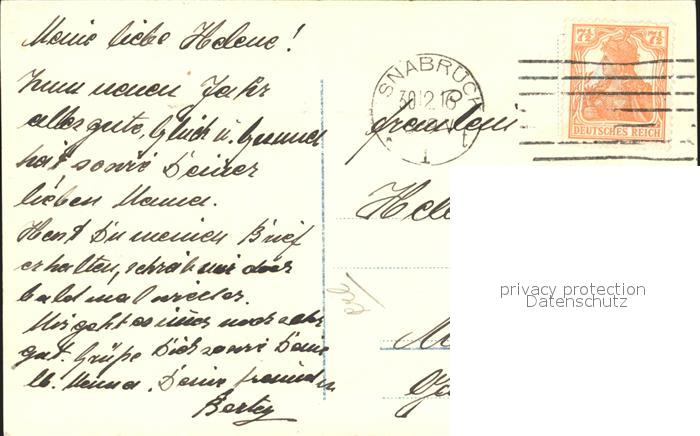 Meine liebe Helene!
Zum neuen Jahr
alles gute, Glück u. Gesund
heit sowie Deiner
lieben Mama.
Hast Du meinen Brief
erhalten, schreib mir doch
bald mal wieder.
Mir geht es immer noch sehr
gut. Grüße Dich sowie Deine
lb. Mama, Deine Freundin
SNABRÜCK
30.12.16
1
7½ 7½
DEUTSCHES REICH
Fräulein
Hele
privacy protection
Datenschutz